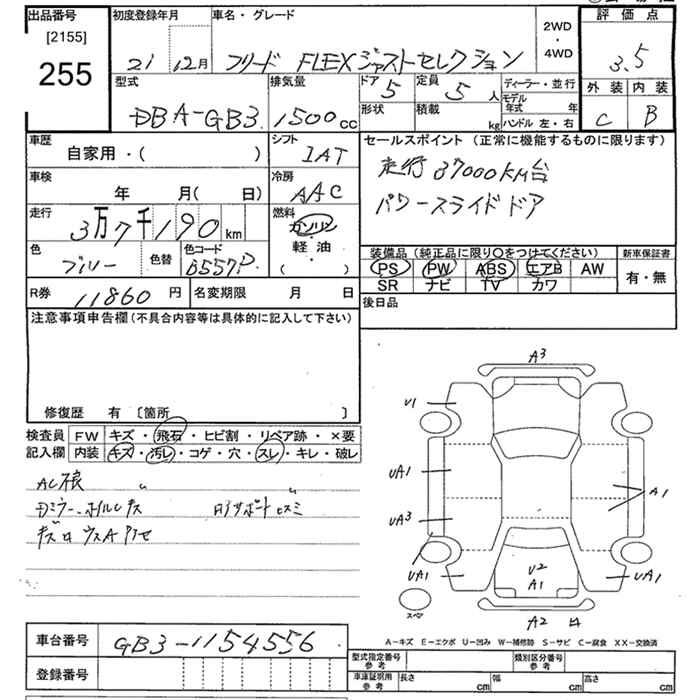 出品番号
[2155]
255
初度登録年月
21 12月
車名・グレード
フリード FLEXジャストセレクション
2WD
・
4WD
評価点
3.5
外装 内装
C B
型式
DBA-GB3
排気量
1500cc
ドア
5
定員
5人
形状
積載
kg
ディーラー・並行
モデル年式 年
ハンドル 左・右
車歴
自家用・( )
シフト
IAT
車検
年 月( 日)
冷房
AAC
走行
3万7千190km
燃料
ガソリン
・
軽油
( )
色
ブルー
色替
色コード
B557P
R券
11860円
名変期限 月 日
セールスポイント (正常に機能するものに限ります)
走行 37000KM台
パワースライドドア
装備品 (純正品に限り○をつけてください)
PS PW ABS エアB AW
SR ナビ TV カワ
新車保証書
有・無
後日品
注意事項申告欄 (不具合内容等は具体的に記入して下さい)
修復歴 有 〔箇所 〕
検査員
記入欄
FW キズ・飛石・ヒビ割・リペア跡・×要
内装 キズ・汚レ・コゲ・穴・スレ・キレ・破レ
Dミラー、ホイルCキズ
A3
U1
UA1
UA3
UA1
A1
UA1
U2
A1
A2
スペア
A-キズ E-エクボ U-凹み W-補修跡 S-サビ C-腐食 XX-交換済
車台番号
GB3-1154556
登録番号
型式指定番号
参考
類別区分番号
参考
車庫証明用
参考
長さ cm 幅 cm 高さ cm